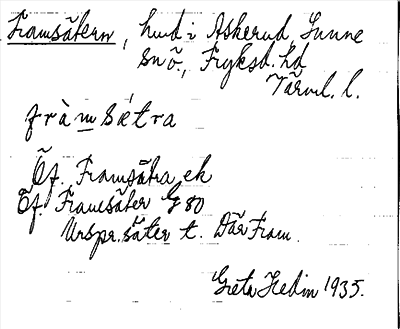 Framsätern, hmd i Askerud, Sunne
sn ö., Fryksd. hd
Värml. l.
fràmsétra
Öf. Framsätra ek
Öf. Framsäter G 80
Urspr. säter t. Där Fram.
Greta Hedin 1935.